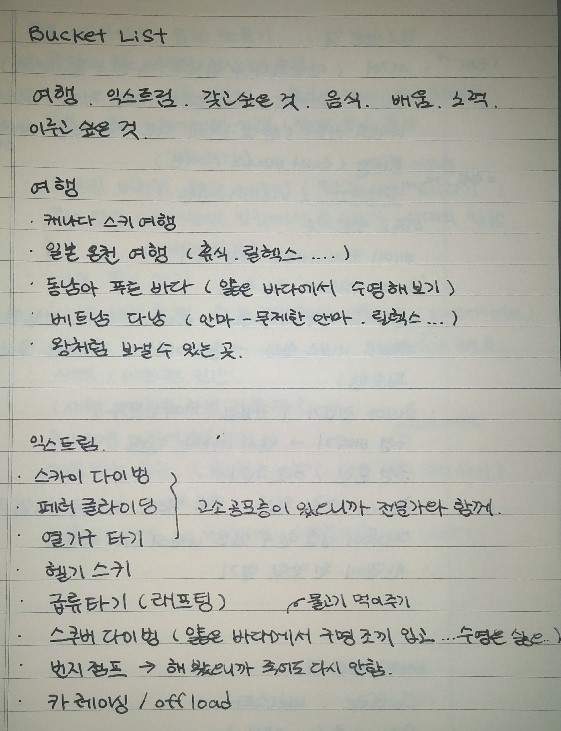 Bucket List
여행. 익스트림. 갖고싶은 것. 음식. 배움. 노력.
이루고 싶은 것.
여행
· 캐나다 스키여행
· 일본 온천 여행 (휴식. 릴렉스 ....)
· 동남아 푸른 바다 (얇은 바다에서 수영해보기)
베트남 다낭 (안마 - 무제한 안마. 릴렉스...)
· 왕처럼 보낼 수 있는 곳.
익스트림.
· 스카이 다이빙
· 페러 글라이딩 고소공포증이 있으니까 전문가와 함께.
· 열기구 타기
· 헬기 스키
· 급류타기 (래프팅) 물고기 먹여주기
· 스쿠버 다이빙 (얇은 바다에서 구명조끼 입고 ...수영은 싫은..)
· 번지점프 → 해봤으니까 죽어도 다시 안함.
· 카 레이싱 / off load